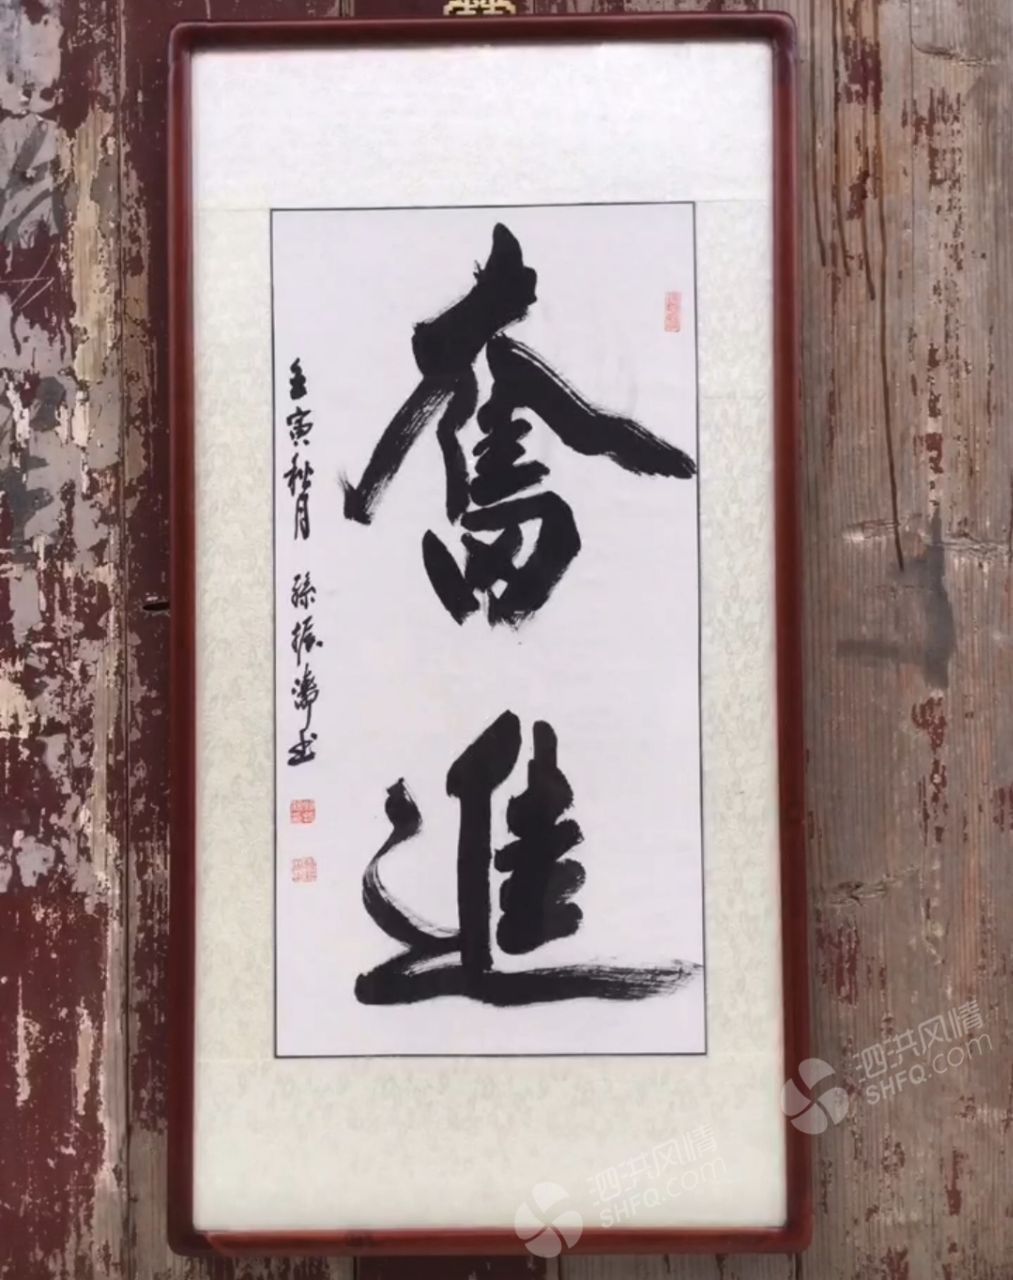 奮進
壬寅秋月 孫振濤书
泗洪风情
SHFQ.com
泗洪风情
SHFQ.com